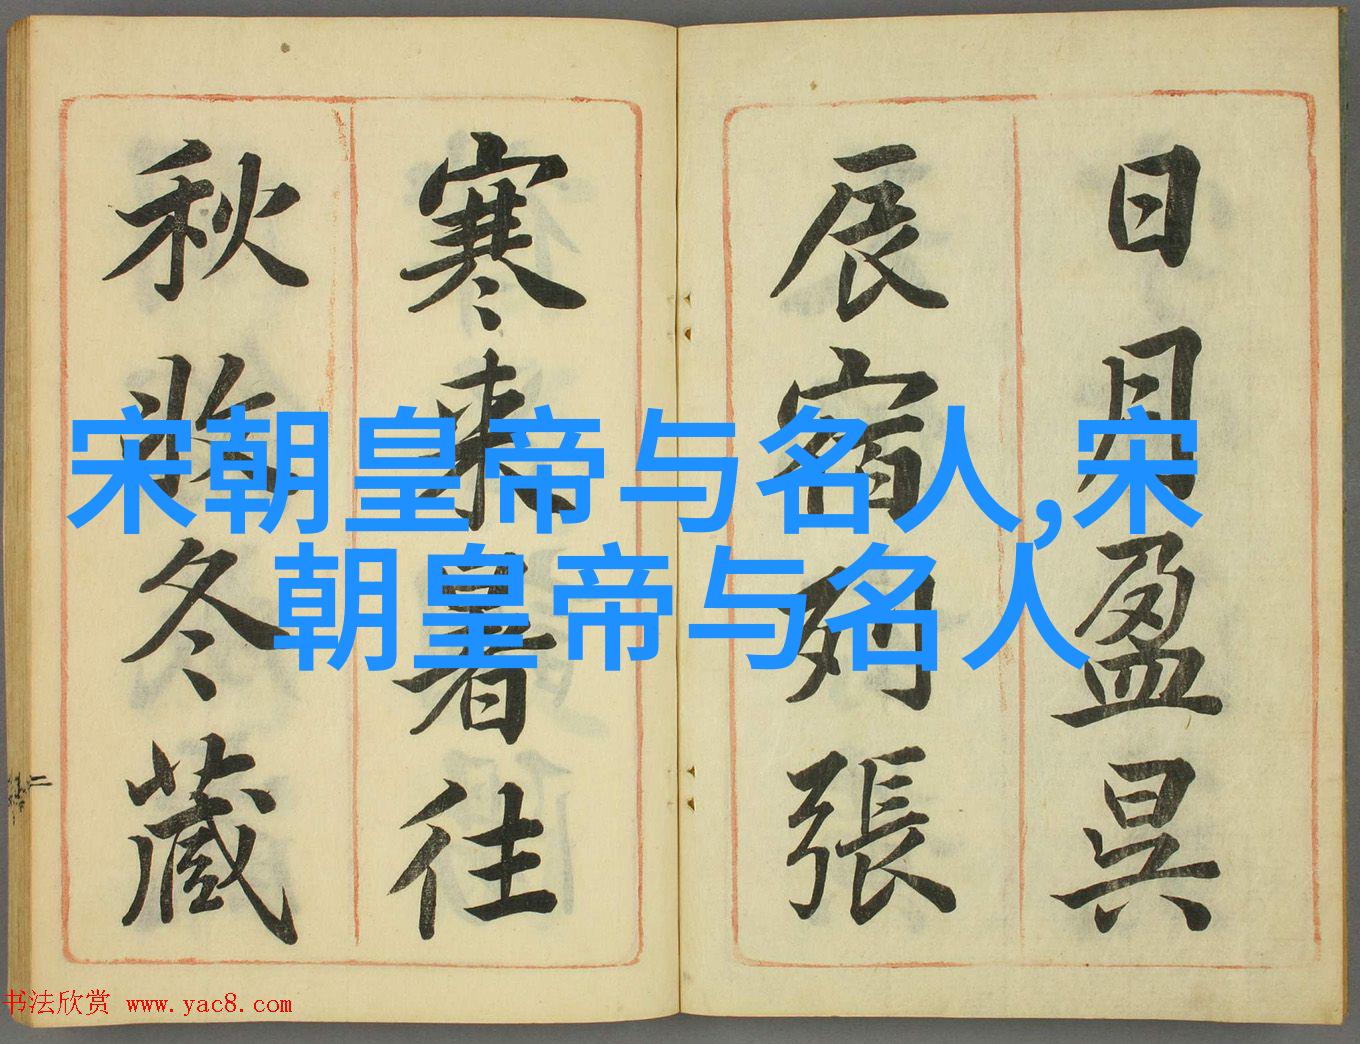 日月盈昃
辰宿列張
寒来暑往
秋收冬藏
宋朝皇帝与名人,宋
朝皇帝与名人
书法欣赏 www.yac8.com